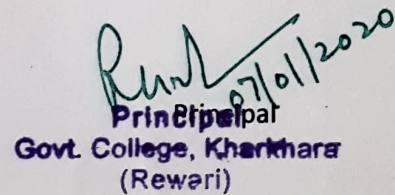 07/01/2020
Principal
Principal
Govt. College, Kharkhara
(Rewari)